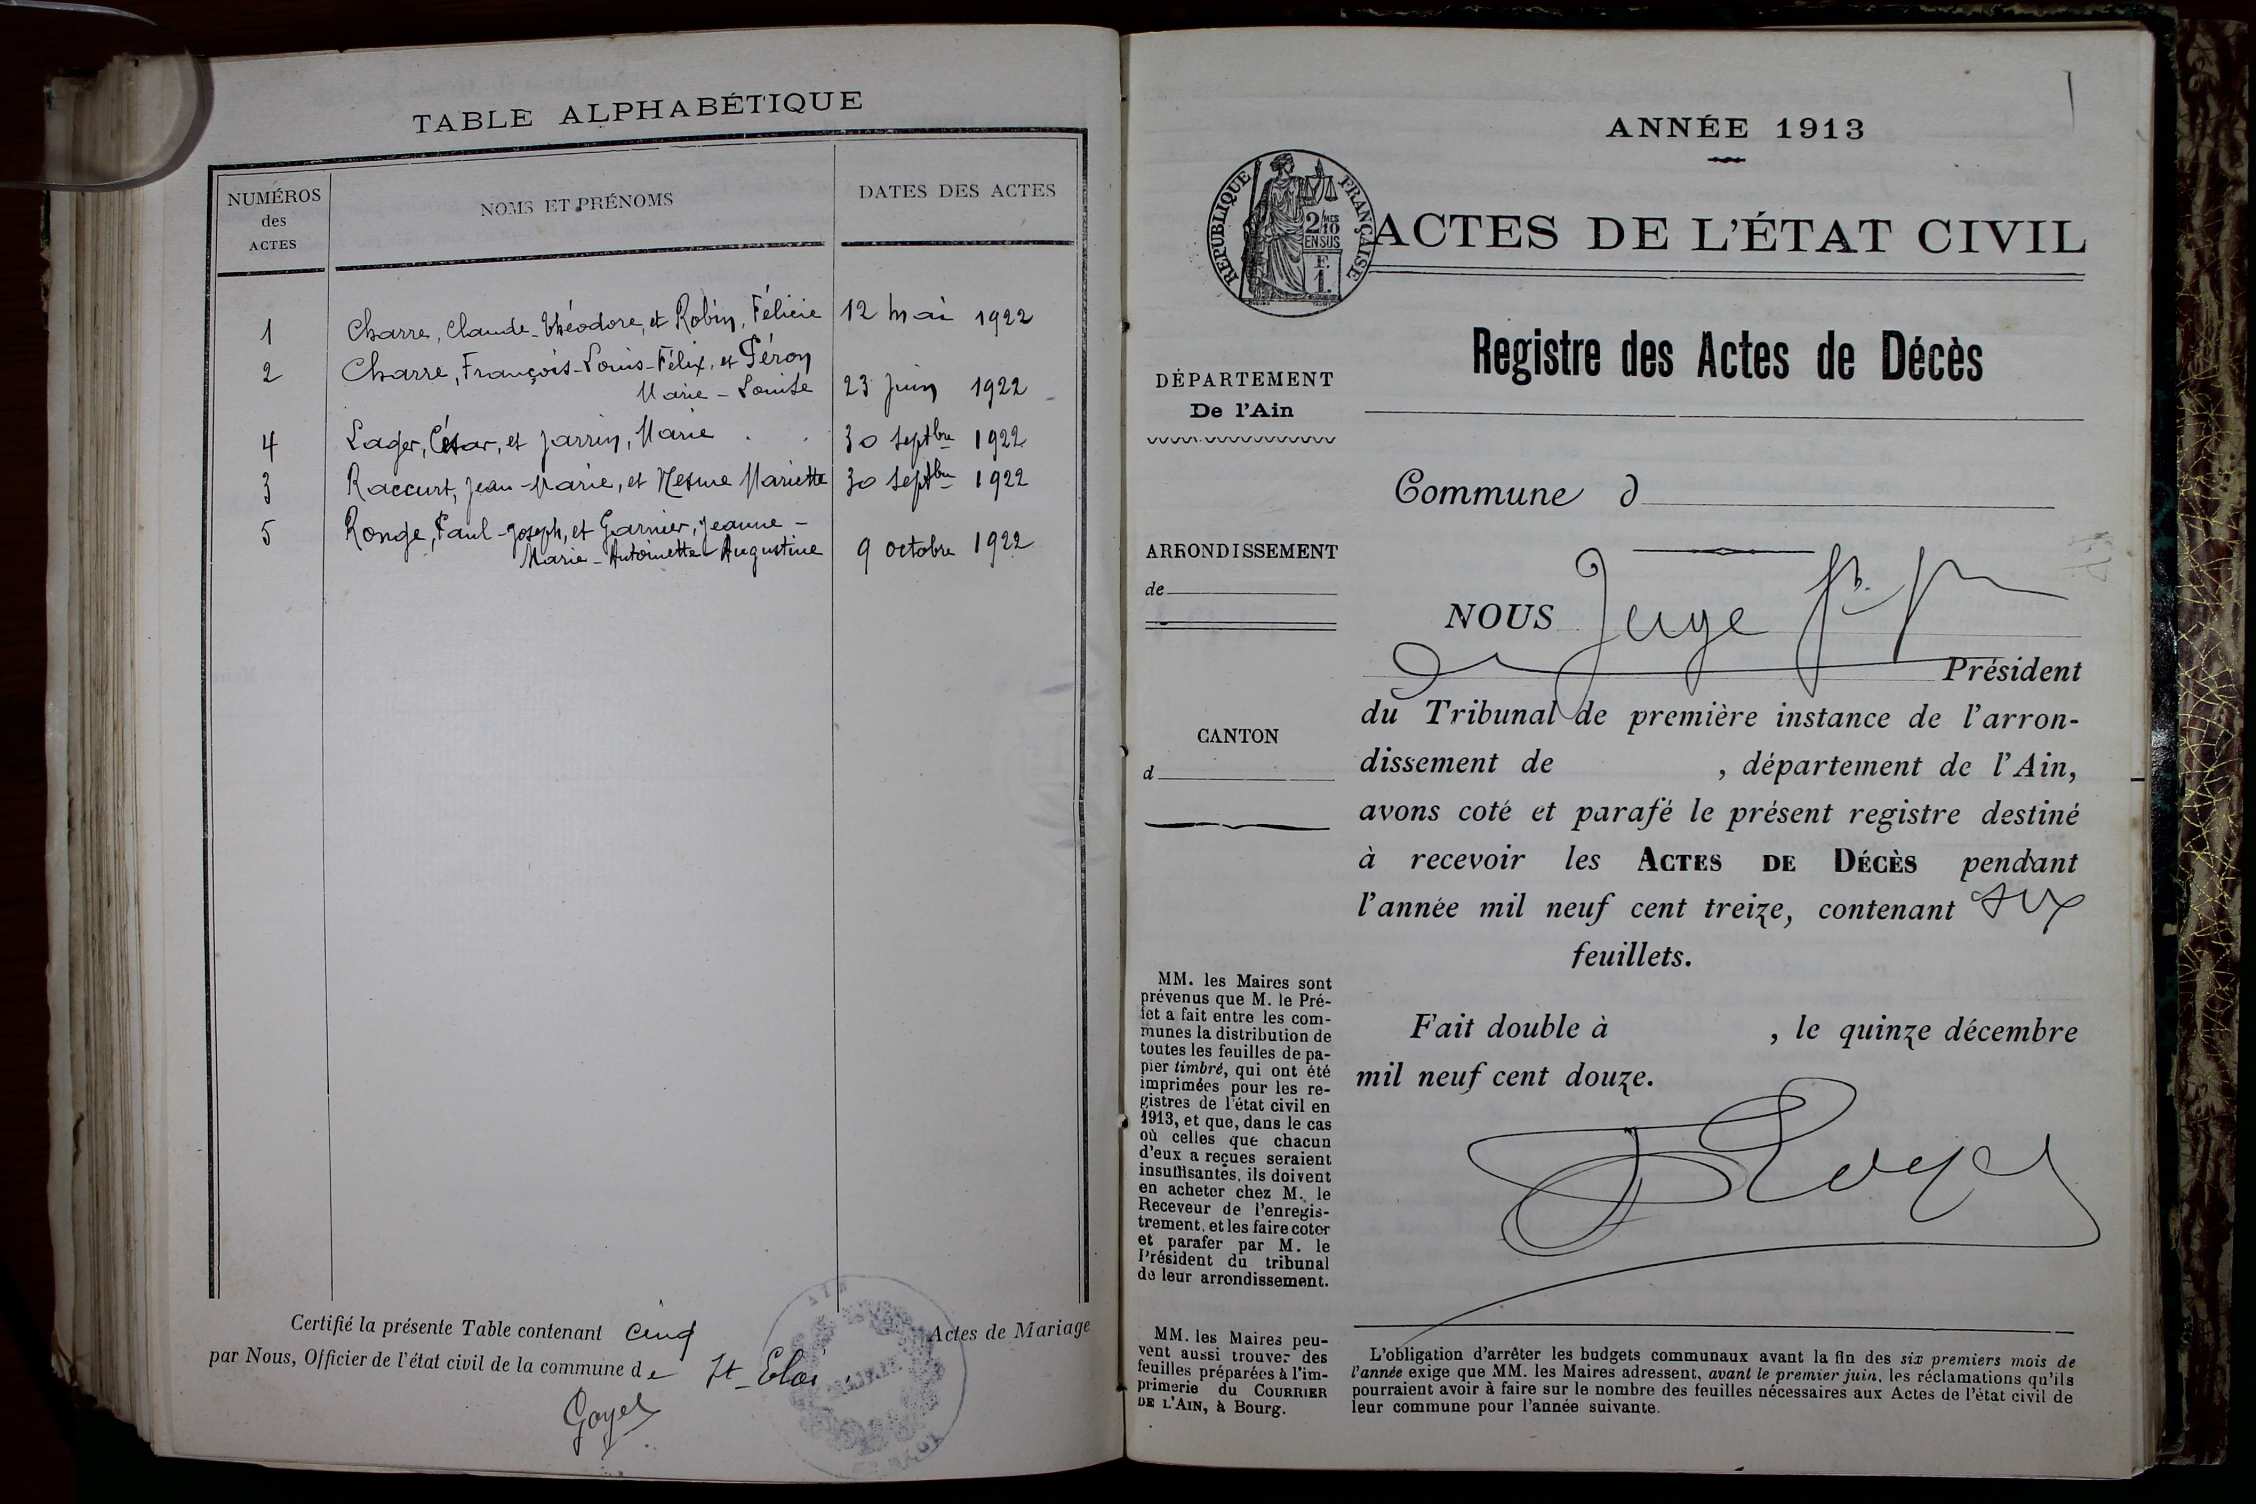 TABLE ALPHABÉTIQUE
NUMÉROS
des
ACTES
NOMS ET PRÉNOMS
DATES DES ACTES
1 Charre, Claude-Théodore, et Robin, Félicie 12 mai 1922
2 Charre, François-Louis-Félix, et Péron
Marie-Louise 23 juin 1922
4 Lager, César, et Jarrin, Marie . . 30 septbre 1922
3 Raccurt, Jean-Marie, et Mesme Mariette 30 septbre 1922
5 Ronge, Paul-Joseph, et Garnier, Jeanne-
Marie-Antoinette Augustine 9 octobre 1922
Certifié la présente Table contenant cinq Actes de Mariage
par Nous, Officier de l'état civil de la commune de St-Eloi.
Goyet
ANNÉE 1913
RÉPUBLIQUE FRANÇAISE
2/MES
10
EN SUS
F.
1.
ACTES DE L'ÉTAT CIVIL
Registre des Actes de Décès
DÉPARTEMENT
De l'Ain
ARRONDISSEMENT
de
CANTON
d
MM. les Maires sont
prévenus que M. le Pré-
fet a fait entre les com-
munes la distribution de
toutes les feuilles de pa-
pier timbré, qui ont été
imprimées pour les re-
gistres de l'état civil en
1913, et que, dans le cas
où celles que chacun
d'eux a reçues seraient
insuffisantes, ils doivent
en acheter chez M. le
Receveur de l'enregis-
trement, et les faire coter
et parafer par M. le
Président du tribunal
de leur arrondissement.
MM. les Maires peu-
vent aussi trouver des
feuilles préparées à l'im-
primerie du COURRIER
DE L'AIN, à Bourg.
Commune d
NOUS Juge
Président
du Tribunal de première instance de l'arron-
dissement de , département de l'Ain,
avons coté et parafé le présent registre destiné
à recevoir les ACTES DE DÉCÈS pendant
l'année mil neuf cent treize, contenant six
feuillets.
Fait double à , le quinze décembre
mil neuf cent douze.
L'obligation d'arrêter les budgets communaux avant la fin des six premiers mois de
l'année exige que MM. les Maires adressent, avant le premier juin, les réclamations qu'ils
pourraient avoir à faire sur le nombre des feuilles nécessaires aux Actes de l'état civil de
leur commune pour l'année suivante.